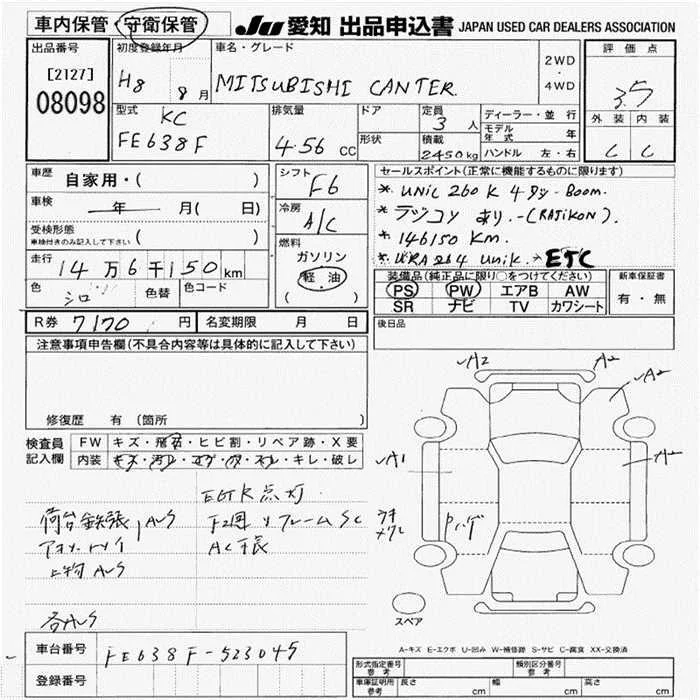 車内保管・守衛保管
JU 愛知 出品申込書 JAPAN USED CAR DEALERS ASSOCIATION
出品番号
[2127]
08098
初度登録年月
H8 8月
車名・グレード
MITSUBISHI CANTER
2WD
・
4WD
評価点
3.5
外装 内装
C C
型式
KC
FE638F
排気量
4.56 CC
ドア
形状
定員
3 人
積載
2450kg
ディーラー・並行
モデル年式 年
ハンドル 左・右
車歴 自家用・( )
車検 年 月(日)
受検形態
車検付きのみ記入して下さい ( )
走行 14万6千150km
色 シロ 色替 色コード
シフト
F6
冷房
A/C
燃料
ガソリン
軽油
( )
セールスポイント(正常に機能するものに限ります)
* UNIC 260K 4ダン. Boom.
* ラジコン あり.-(RAJIKON).
* 146150 Km.
* URA 264 Unik → ETC
装備品(純正品に限り○をつけてください)
PS PW エアB AW
SR ナビ TV カワシート
新車保証書
有・無
後日品
R券 7170 円 名変期限 月 日
注意事項申告欄(不具合内容等は具体的に記入して下さい)
修復歴 有(箇所 )
検査員記入欄
FW キズ・飛石・ヒビ割・リペア跡・X要
内装 キズ・汚れ・コゲ・穴・スレ・キレ・破レ
EGチェック点灯
荷台鉄張 AUS
上物 AUS
各AUS
A2
A2
A2
A1
A2
スペア
A-キズ E-エクボ U-凹み W-補修跡 S-サビ C-腐食 XX-交換済
車台番号 FE638F-523045
登録番号
形式指定番号
参考
類別区分番号
参考
車庫証明用
参考
長さ cm 幅 cm 高さ cm